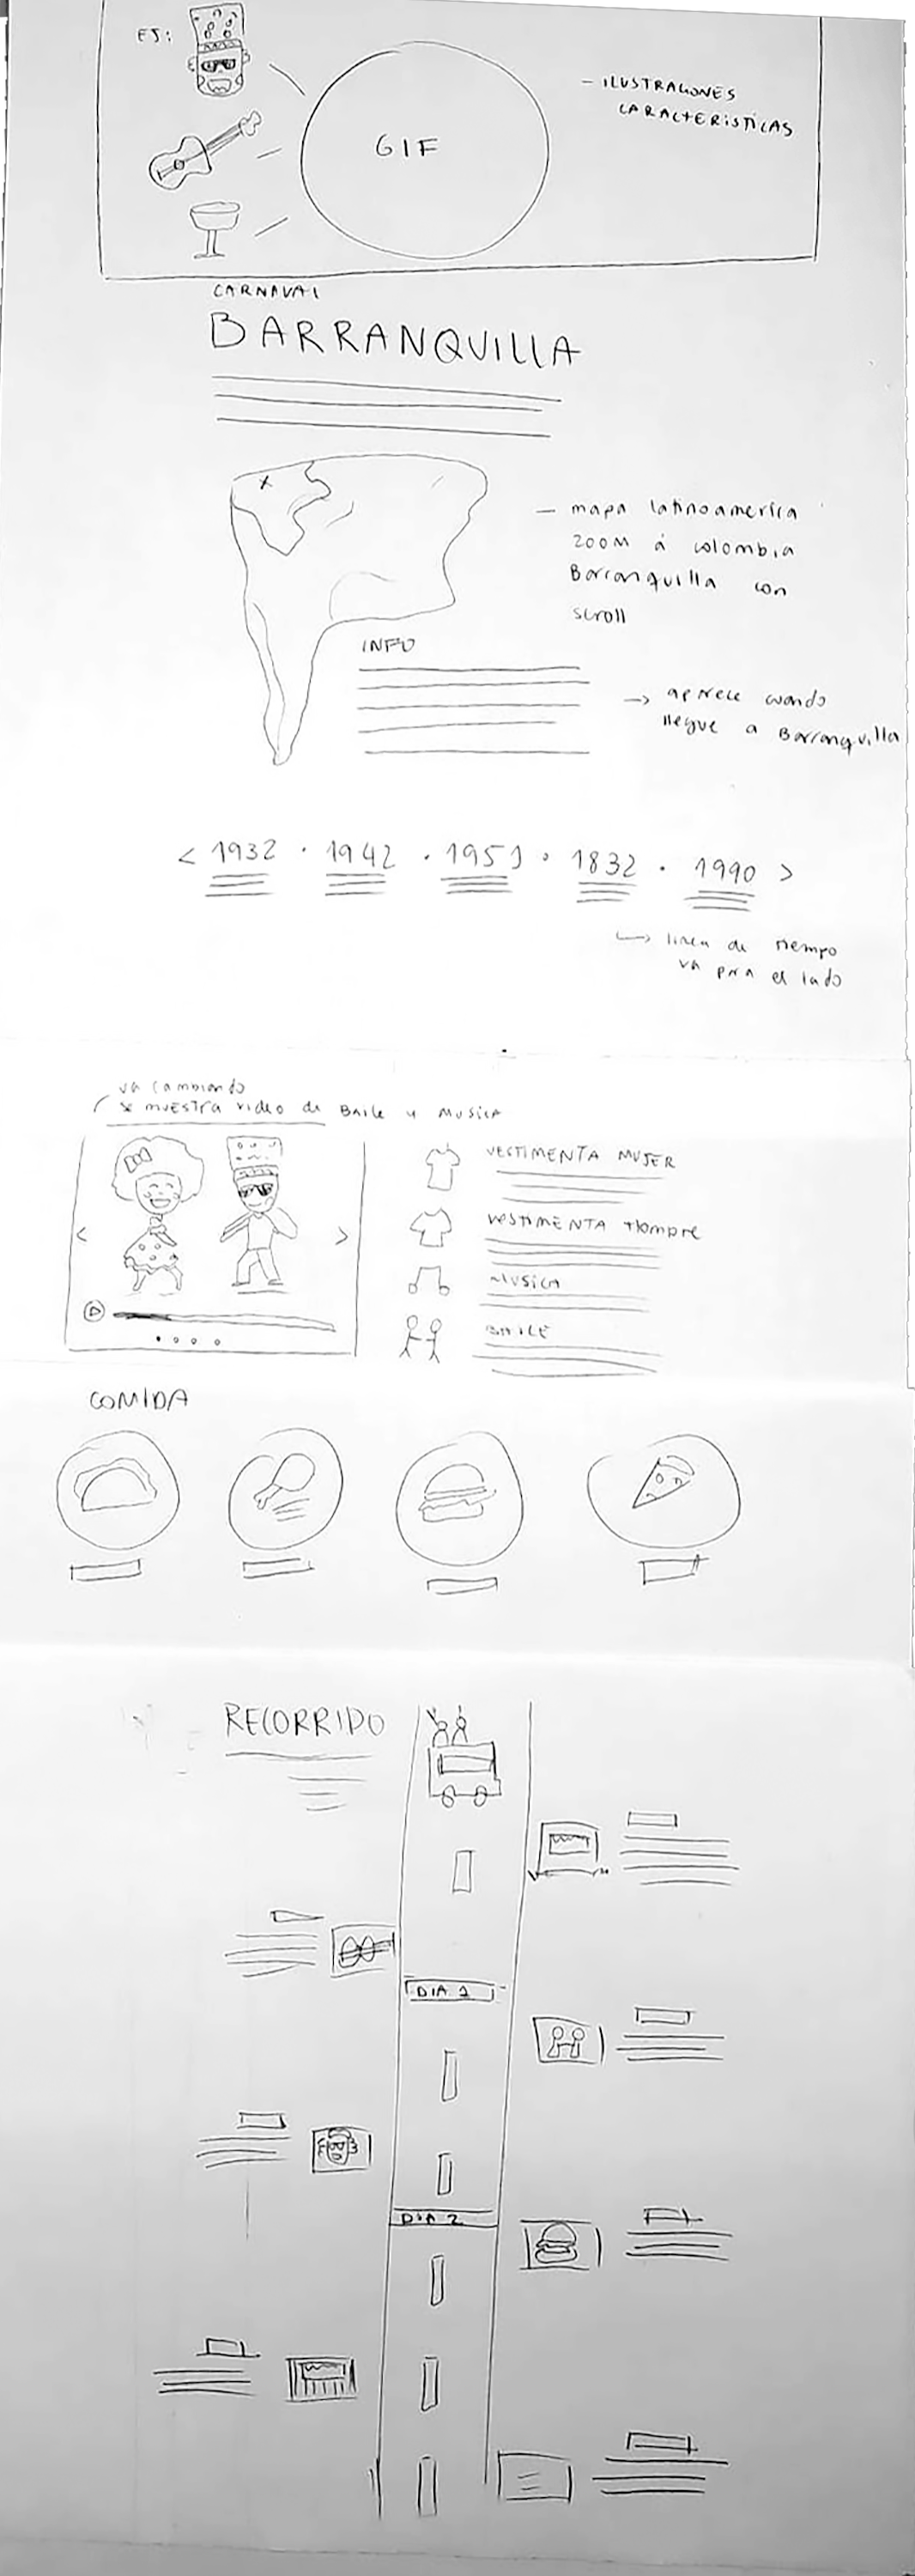 EJ:
GIF
- ILUSTRACIONES
CARACTERISTICAS
CARNAVAL
BARRANQUILLA
x
— mapa latinoamerica
zoom a colombia
Barranquilla con
scroll
INFO
→ aparece cuando
llegue a Barranquilla
< 1932 · 1942 · 1951 · 1832 · 1990 >
↳ linea de tiempo
va para el lado
va cambiando
se muestra video de BAILE y MUSICA
< >
VESTIMENTA MUJER
VESTIMENTA Hombre
MUSICA
BAILE
COMIDA
RECORRIDO
DIA 1
DIA 2